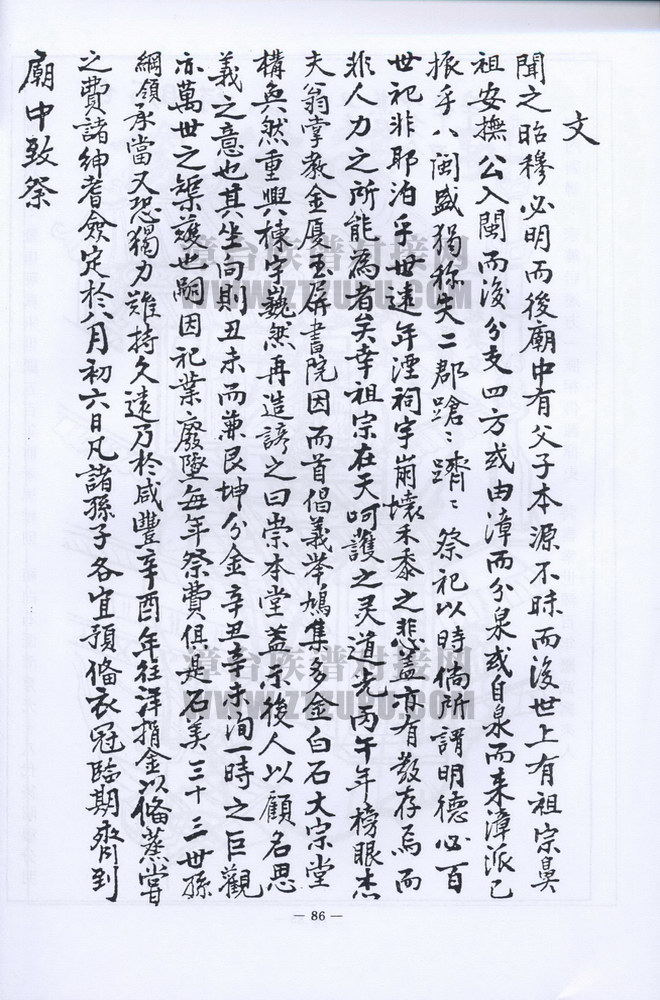 文
聞之昭穆必明而後廟中有父子本源不昧而後世上有祖宗鼻
祖安撫公入閩而後分支四方或由漳而分泉或自泉而来漳派已
振乎八閩盛猶称失二郡蹌々蹐々祭祀以時倘所謂明德必百
世祀非耶洎乎世遠年湮祠宇崩壞禾黍之悲盖亦有数存焉而
非人力之所能為者矣幸祖宗在天呵護之灵道光丙午年榜眼杰
夫翁掌教金厦玉屏書院因而首倡義举鳩集多金白石大宗堂
構奐然重興棟宇巍然再造諺之曰崇本堂盖示後人以顧名思
義之意也其坐向則丑未而兼艮坤分金辛丑辛未洵一時之巨觀
亦萬世之榘矱也嗣因祀業廢墜每年祭費俱是石美三十三世孫
綱領承當又恐獨力難持久遠乃於咸豐辛酉年往洋捐金以俻蒸嘗
之費諸紳耆僉定於八月初六日凡諸孫子各宜預俻衣冠臨期齊到
廟中致祭
漳台族谱对接网
WWW.ZTZUPU.COM
漳台族谱对接网
WWW.ZTZUPU.COM
— 86 —